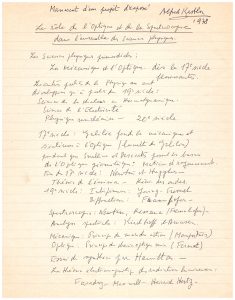 Manuscrit d'un projet d'exposé Alfred Kastler
1978
Le rôle de l'Optique et de la Spectroscopie
dans l'ensemble des Sciences physiques
Les Sciences physiques
La Mécanique et l'Optique dès le 17e siècle
Les autres parties de la Physique se sont
développées qu'à partir du 19e siècle
Science de la chaleur Thermodynamique
Science de l'Electricité
Physique nucléaire - 20e siècle
17e siècle : Galilée fonde la mécanique et
l'optique (lunette de Galilée)
pendant que Snellius et Descartes posent les bases
de l'Optique géométrique :
Fin du 17e siècle : Newton et Huyghens
Théorie de l'émission - Théorie des ondes
19e siècle Interférences : Young - Fresnel
Diffraction : Fraunhofer
Spectroscopie : Newton, (Fraunhofer)
Analyse spectrale : Kirchhoff et Bunsen
Mécanique : Principe de moindre action (Maupertuis)
Optique : Principe de (Fermat)
Essai de synthèse par Hamilton -
La théorie électromagnétique de la lumière
Faraday - Maxwell - Heinrich Hertz